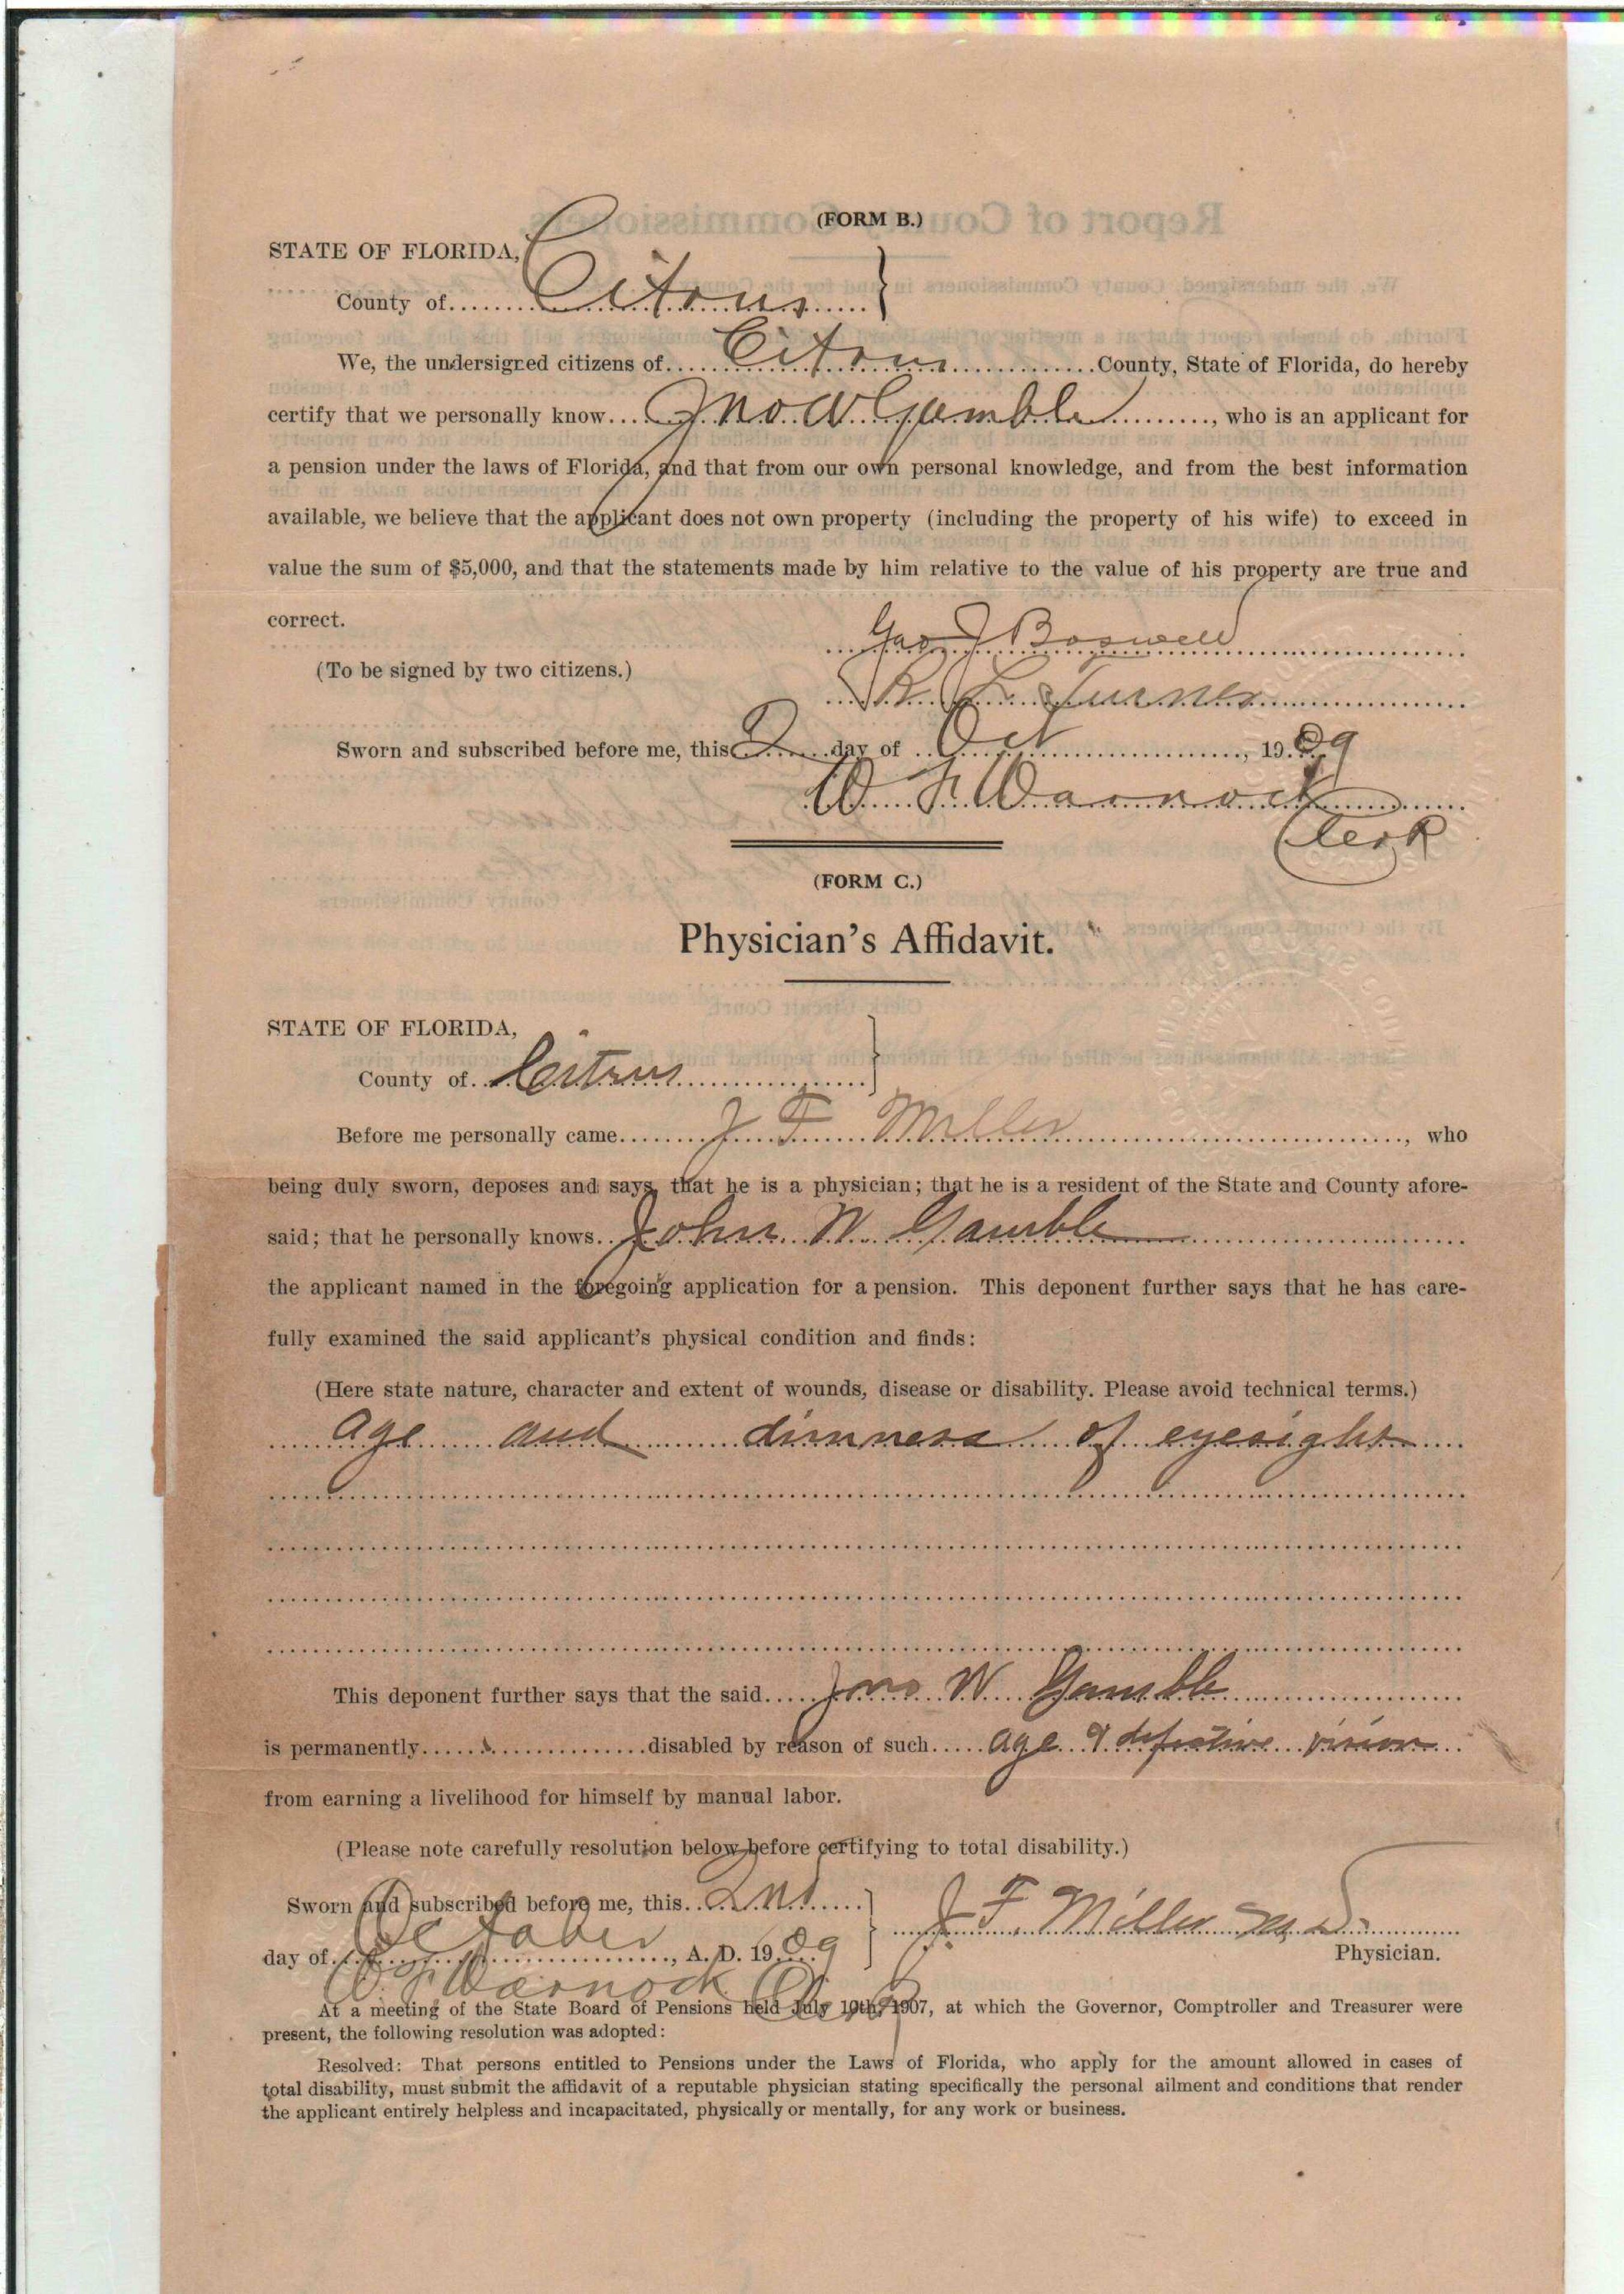 (FORM B.)
STATE OF FLORIDA,
County of Citrus }
We, the undersigned citizens of Citrus County, State of Florida, do hereby
certify that we personally know Jno W Gamble, who is an applicant for
a pension under the laws of Florida, and that from our own personal knowledge, and from the best information
available, we believe that the applicant does not own property (including the property of his wife) to exceed in
value the sum of $5,000, and that the statements made by him relative to the value of his property are true and
correct.
Geo J Boswell
(To be signed by two citizens.)
R. L. Turner
Sworn and subscribed before me, this 2 day of Oct, 1909
W. F. Warnock
Clerk
(FORM C.)
Physician's Affidavit.
STATE OF FLORIDA,
County of Citrus }
Before me personally came J F Miller, who
being duly sworn, deposes and says, that he is a physician; that he is a resident of the State and County afore-
said; that he personally knows John W Gamble
the applicant named in the foregoing application for a pension. This deponent further says that he has care-
fully examined the said applicant's physical condition and finds:
(Here state nature, character and extent of wounds, disease or disability. Please avoid technical terms.)
age and dimness of eyesight
This deponent further says that the said Jno W Gamble
is permanently disabled by reason of such age & defective vision
from earning a livelihood for himself by manual labor.
(Please note carefully resolution below before certifying to total disability.)
Sworn and subscribed before me, this 2nd
day of October, A. D. 1909 }
J. F. Miller M D.
Physician.
W. F. Warnock Clerk
At a meeting of the State Board of Pensions held July 10th, 1907, at which the Governor, Comptroller and Treasurer were
present, the following resolution was adopted:
Resolved: That persons entitled to Pensions under the Laws of Florida, who apply for the amount allowed in cases of
total disability, must submit the affidavit of a reputable physician stating specifically the personal ailment and conditions that render
the applicant entirely helpless and incapacitated, physically or mentally, for any work or business.